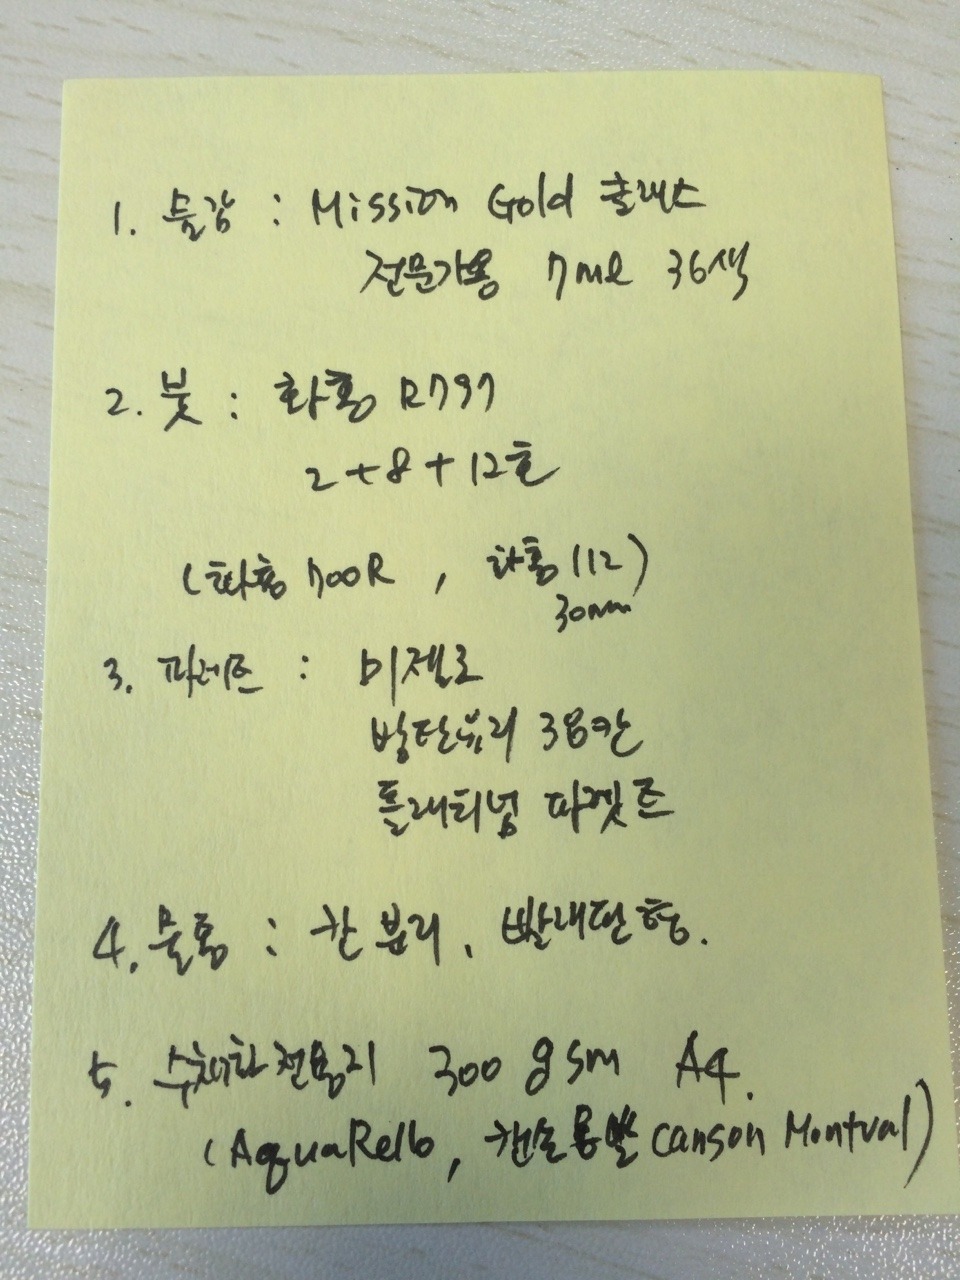 1. 물감 : Mission Gold 클래스
전문가용 7ml 36색
2. 붓 : 화홍 R797
2+8+12호
(화홍 700R , 화홍 112)
30mm
3. 파레트 : 미젤로
방탄유리 38칸
플래티넘 파렛트
4. 물통 : 칸 분리, 빨래판형.
5. 수채화 전용지 300 gsm A4.
(AquaRello, 캔손 몽발 Canson Montval)